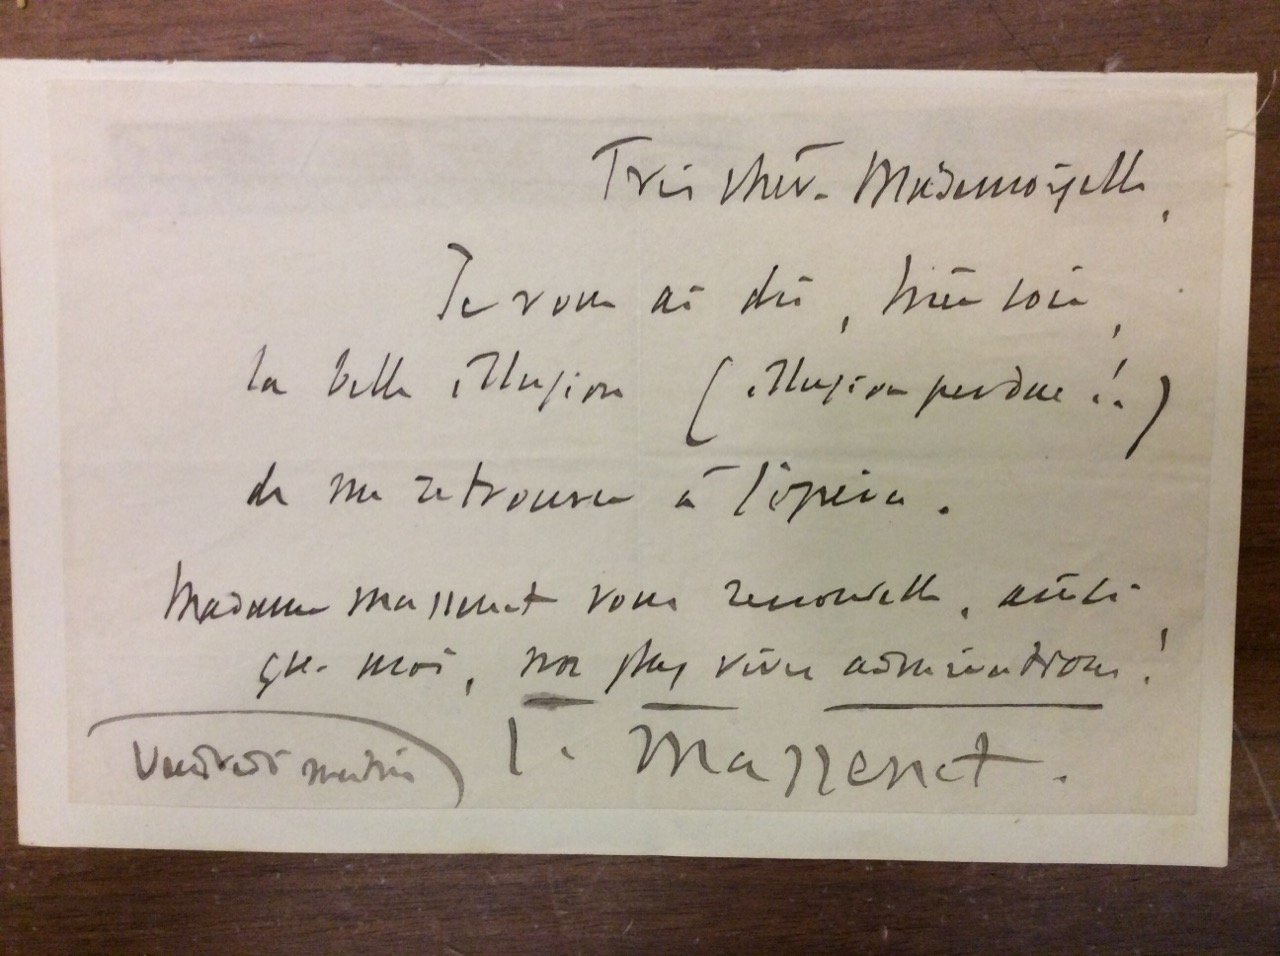 Très chère Mademoiselle,
Je vous ai dû, hier soir,
la belle illusion (illusion perdue !..)
de me retrouver à l'opéra.
Madame Massenet vous renouvelle, ainsi
que moi, nos plus vives admirations !
Vendredi matin
J. Massenet.